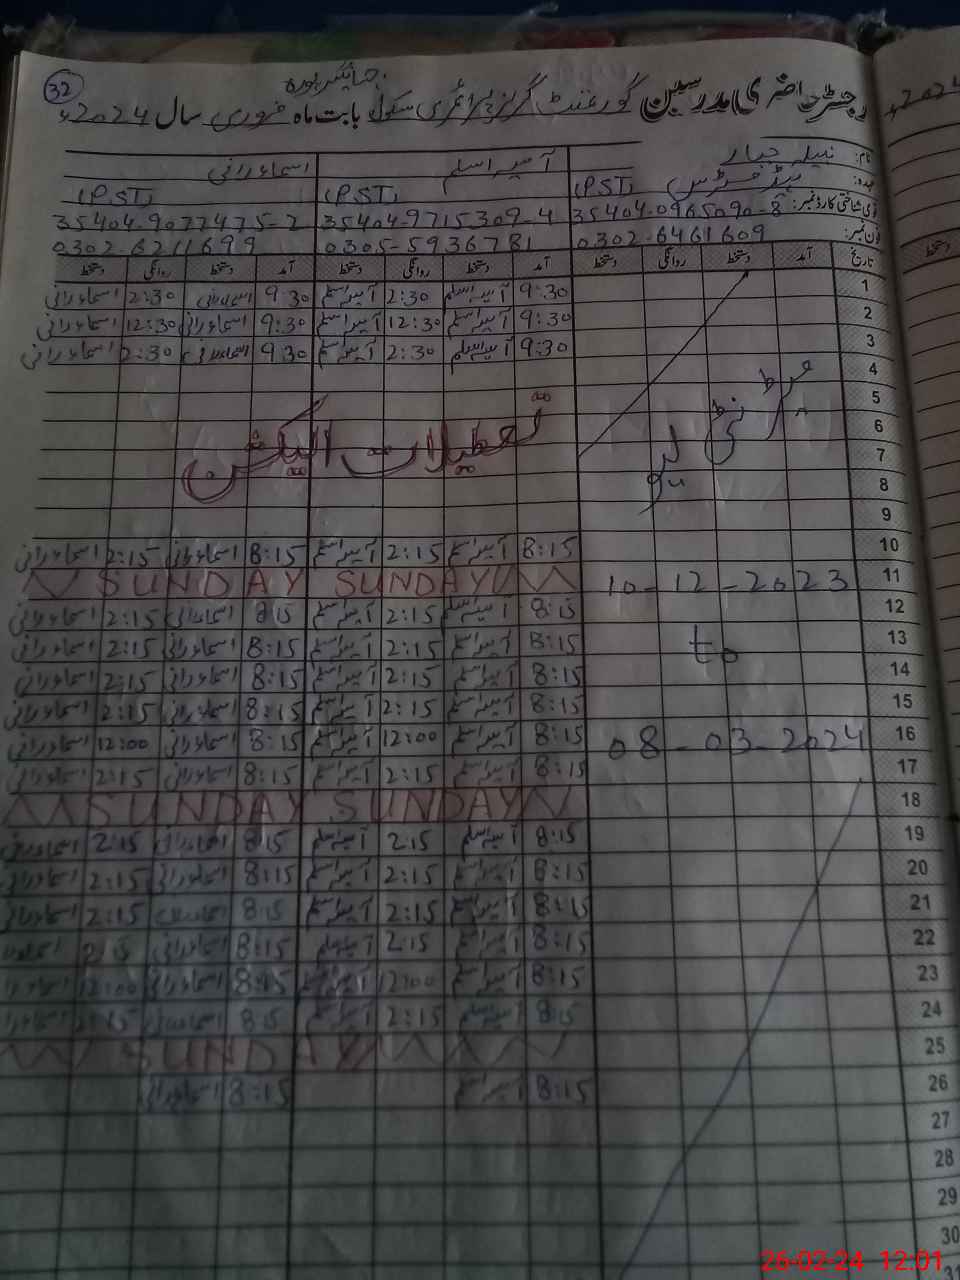 32
جہانگیر پورہ
رجسٹر حاضری مدرسین گورنمنٹ گرلز پرائمری سکول بابت ماہ فروری سال 2024ء
نام: نبیلہ جبار آسیہ اسلم اسماء درانی
عہدہ: ہیڈ مسٹرس (PST) (PST) (PST)
قومی شناختی کارڈ نمبر: 35404-0965090-8 35404-9715309-4 35404-9077475-2
فون نمبر: 0302-6461609 0305-5936781 0302-6211699
تاریخ آمد دستخط روانگی دستخط آمد دستخط روانگی دستخط آمد دستخط روانگی دستخط
1 9:30 آسیہ اسلم 2:30 آسیہ اسلم 9:30 اسماء درانی 2:30 اسماء درانی
2 9:30 آسیہ اسلم 12:30 آسیہ اسلم 9:30 اسماء درانی 12:30 اسماء درانی
3 9:30 آسیہ اسلم 2:30 آسیہ اسلم 9:30 اسماء درانی 2:30 اسماء درانی
4
5
6 میٹرنٹی لیو تعطیلات الیکشن
7
8
9
10 8:15 آسیہ اسلم 2:15 آسیہ اسلم 8:15 اسماء درانی 2:15 اسماء درانی
11 10-12-2023 SUNDAY SUNDAY
12 8:15 آسیہ اسلم 2:15 آسیہ اسلم 8:15 اسماء درانی 2:15 اسماء درانی
13 to 8:15 آسیہ اسلم 2:15 آسیہ اسلم 8:15 اسماء درانی 2:15 اسماء درانی
14 8:15 آسیہ اسلم 2:15 آسیہ اسلم 8:15 اسماء درانی 2:15 اسماء درانی
15 8:15 آسیہ اسلم 2:15 آسیہ اسلم 8:15 اسماء درانی 2:15 اسماء درانی
16 08-03-2024 8:15 آسیہ اسلم 12:00 آسیہ اسلم 8:15 اسماء درانی 12:00 اسماء درانی
17 8:15 آسیہ اسلم 2:15 آسیہ اسلم 8:15 اسماء درانی 2:15 اسماء درانی
18 SUNDAY SUNDAY
19 8:15 آسیہ اسلم 2:15 آسیہ اسلم 8:15 اسماء درانی 2:15 اسماء درانی
20 8:15 آسیہ اسلم 2:15 آسیہ اسلم 8:15 اسماء درانی 2:15 اسماء درانی
21 8:15 آسیہ اسلم 2:15 آسیہ اسلم 8:15 اسماء درانی 2:15 اسماء درانی
22 8:15 آسیہ اسلم 2:15 آسیہ اسلم 8:15 اسماء درانی 2:15
23 8:15 آسیہ اسلم 12:00 آسیہ اسلم 8:15 اسماء درانی 12:00 اسماء درانی
24 8:15 آسیہ اسلم 2:15 آسیہ اسلم 8:15 اسماء درانی 2:15 اسماء درانی
25 SUNDAY
26 8:15 آسیہ اسلم 8:15 اسماء درانی
27
28
29
30
31
2024ء
26-02-24 12:01